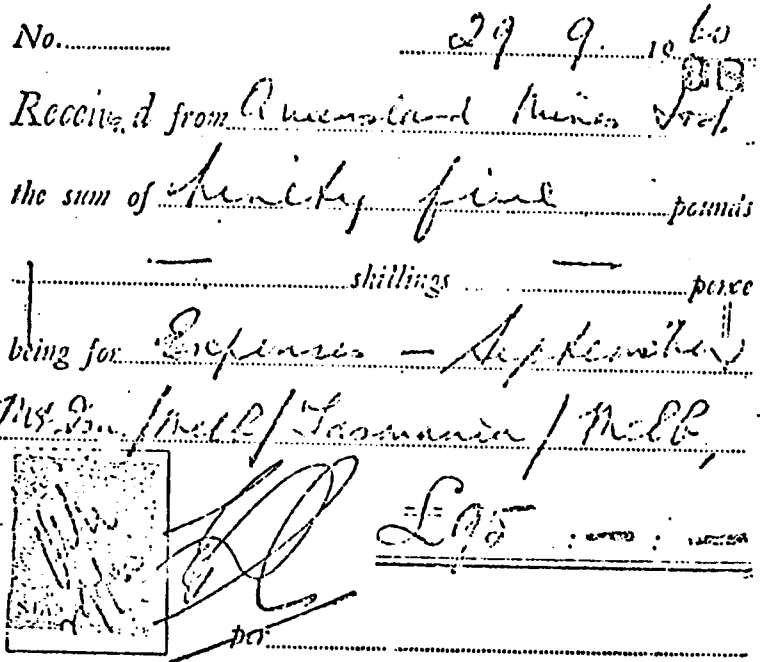 No. 29 9. 1960
Received from Queensland Mines Ltd.
the sum of Ninety five pounds
— shillings — pence
being for Expenses — September
/ Melb / Tasmania / Melb,
£95 : — : —
per